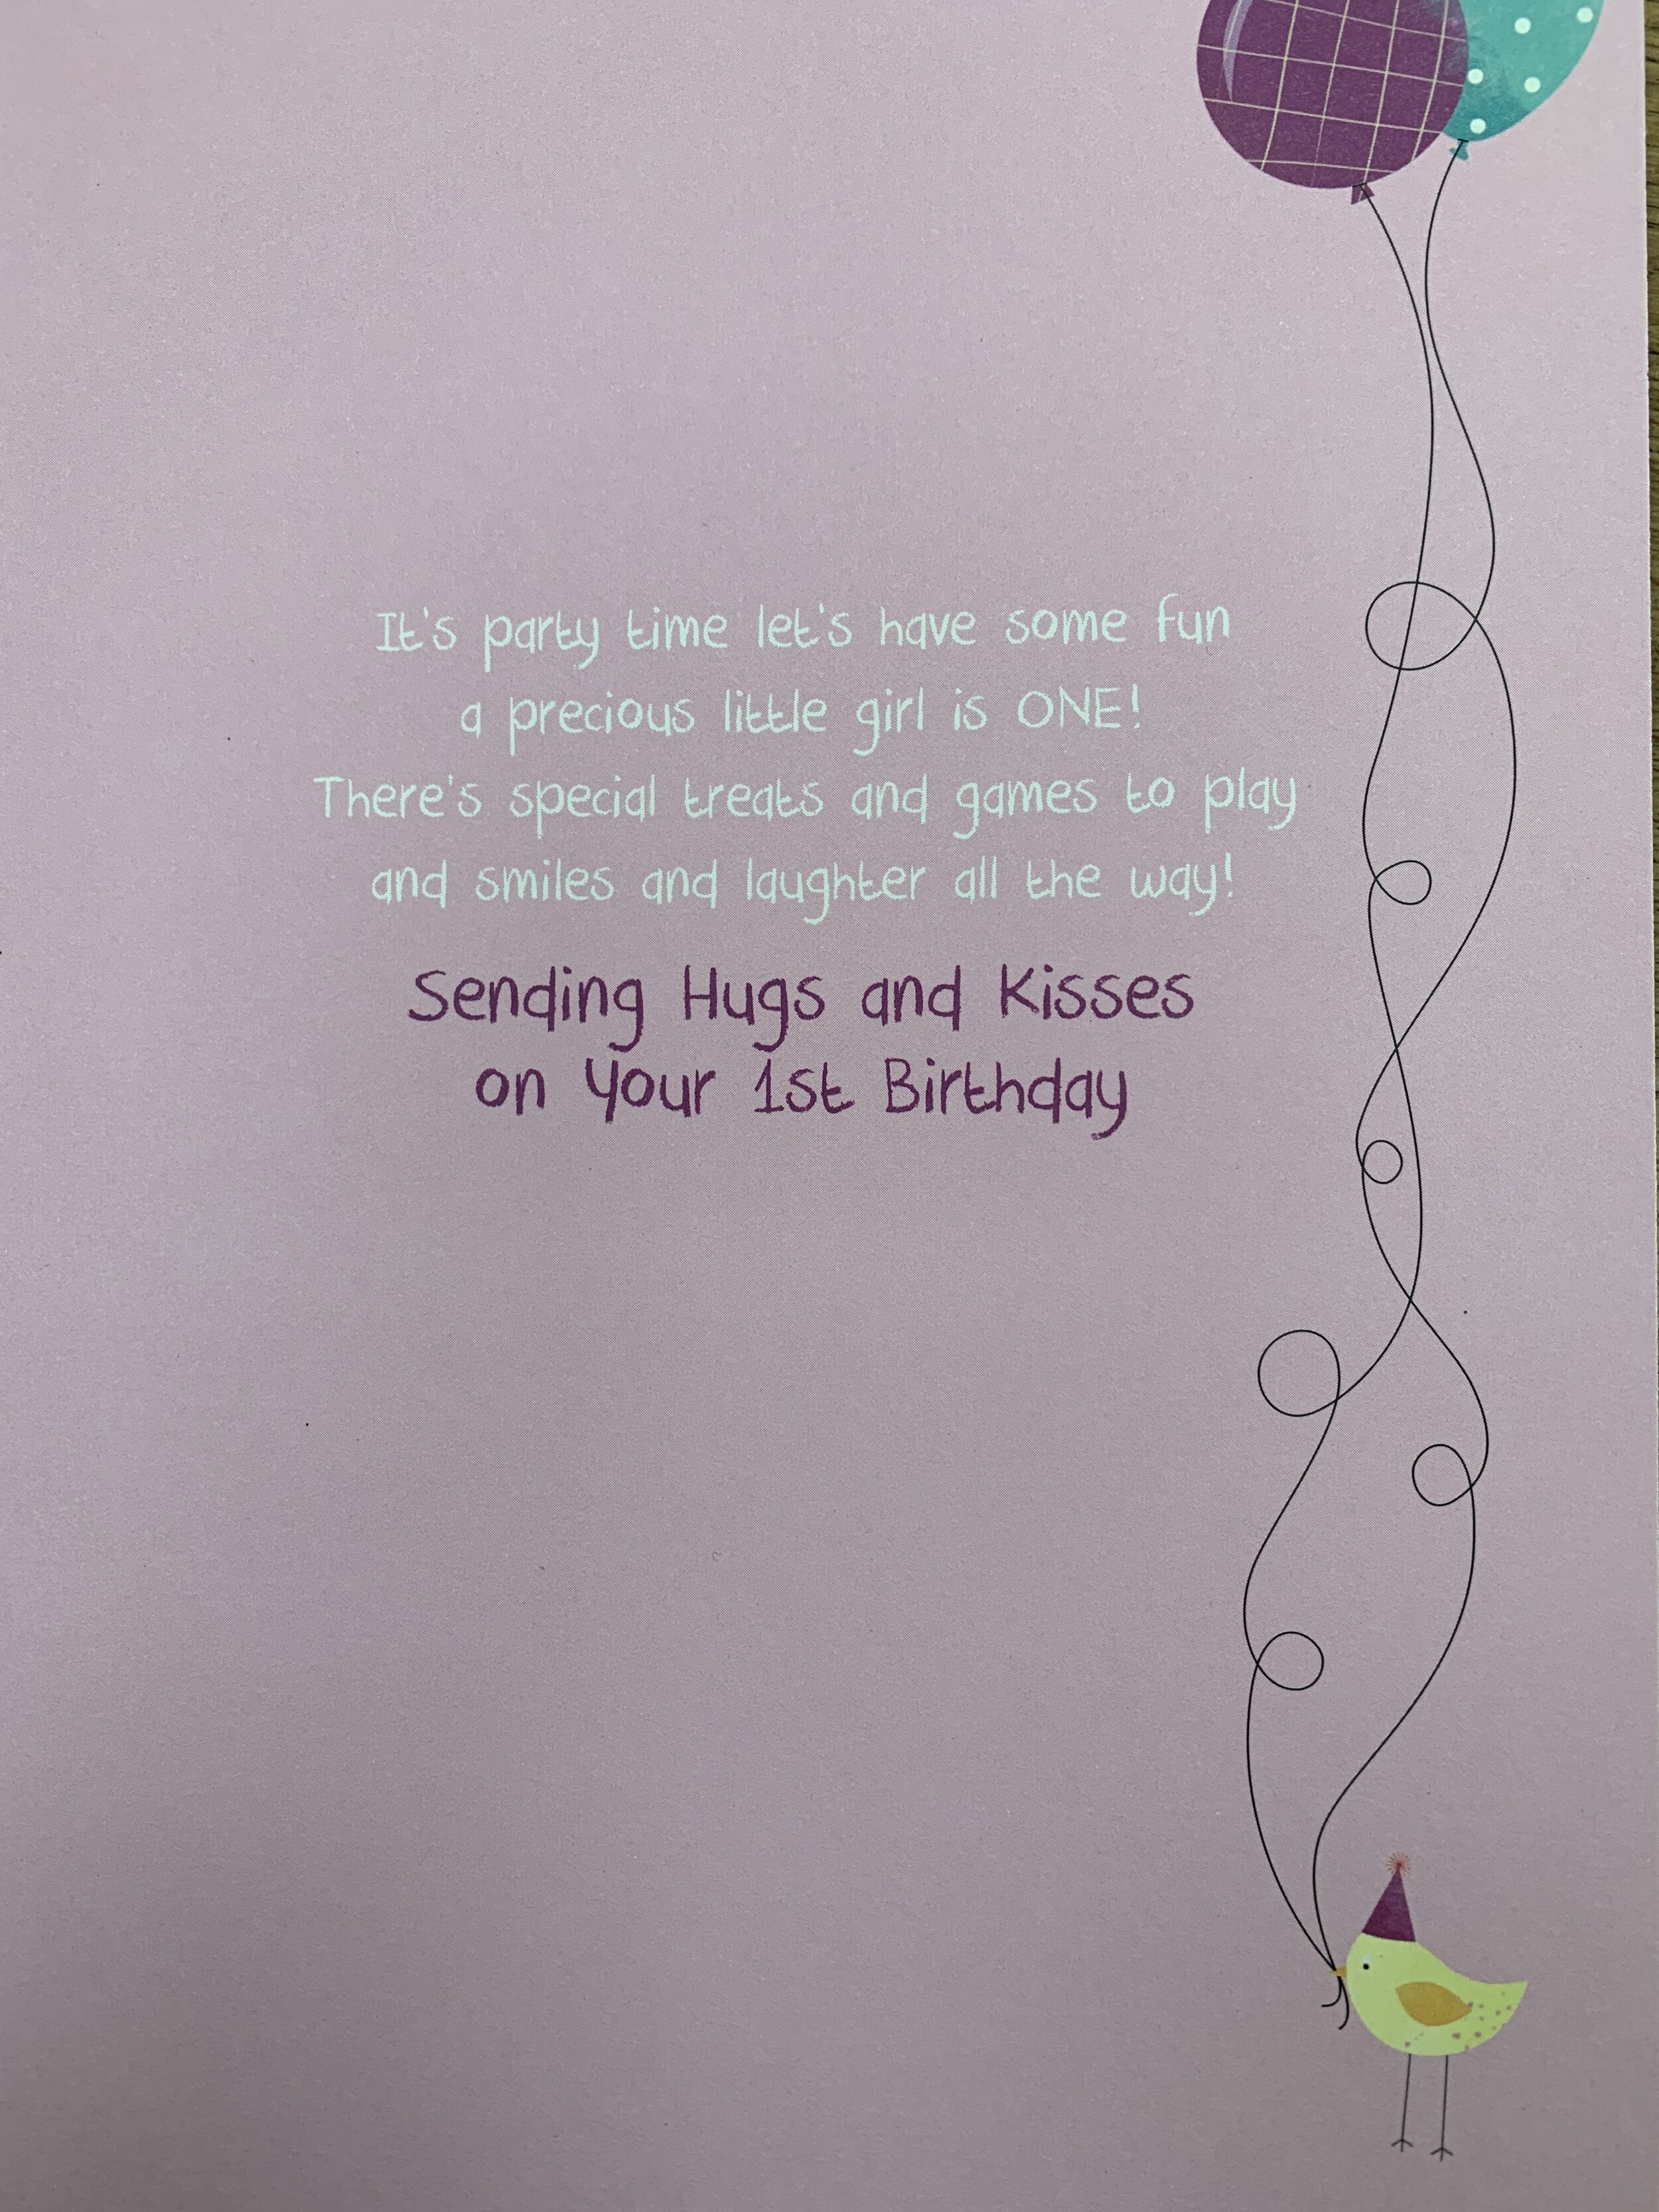 It's party time let's have some fun
a precious little girl is ONE!
There's special treats and games to play
and smiles and laughter all the way!
Sending Hugs and Kisses
on Your 1st Birthday